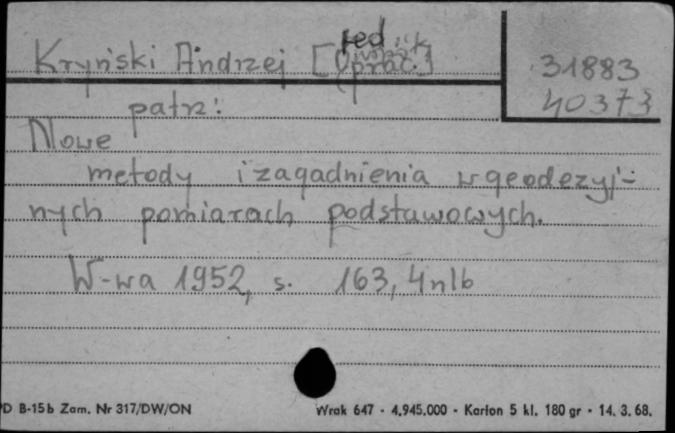 Kryński Andrzej [red.
oprac.]
31883
40373
patrz:
Nowe
metody i zagadnienia w geodezyj-
nych pomiarach podstawowych.
W-wa 1952, s. 163, 4nlb
PD B-15b Zam. Nr 317/DW/ON
Wrak 647 - 4.945.000 - Karton 5 kl. 180 gr - 14. 3. 68.